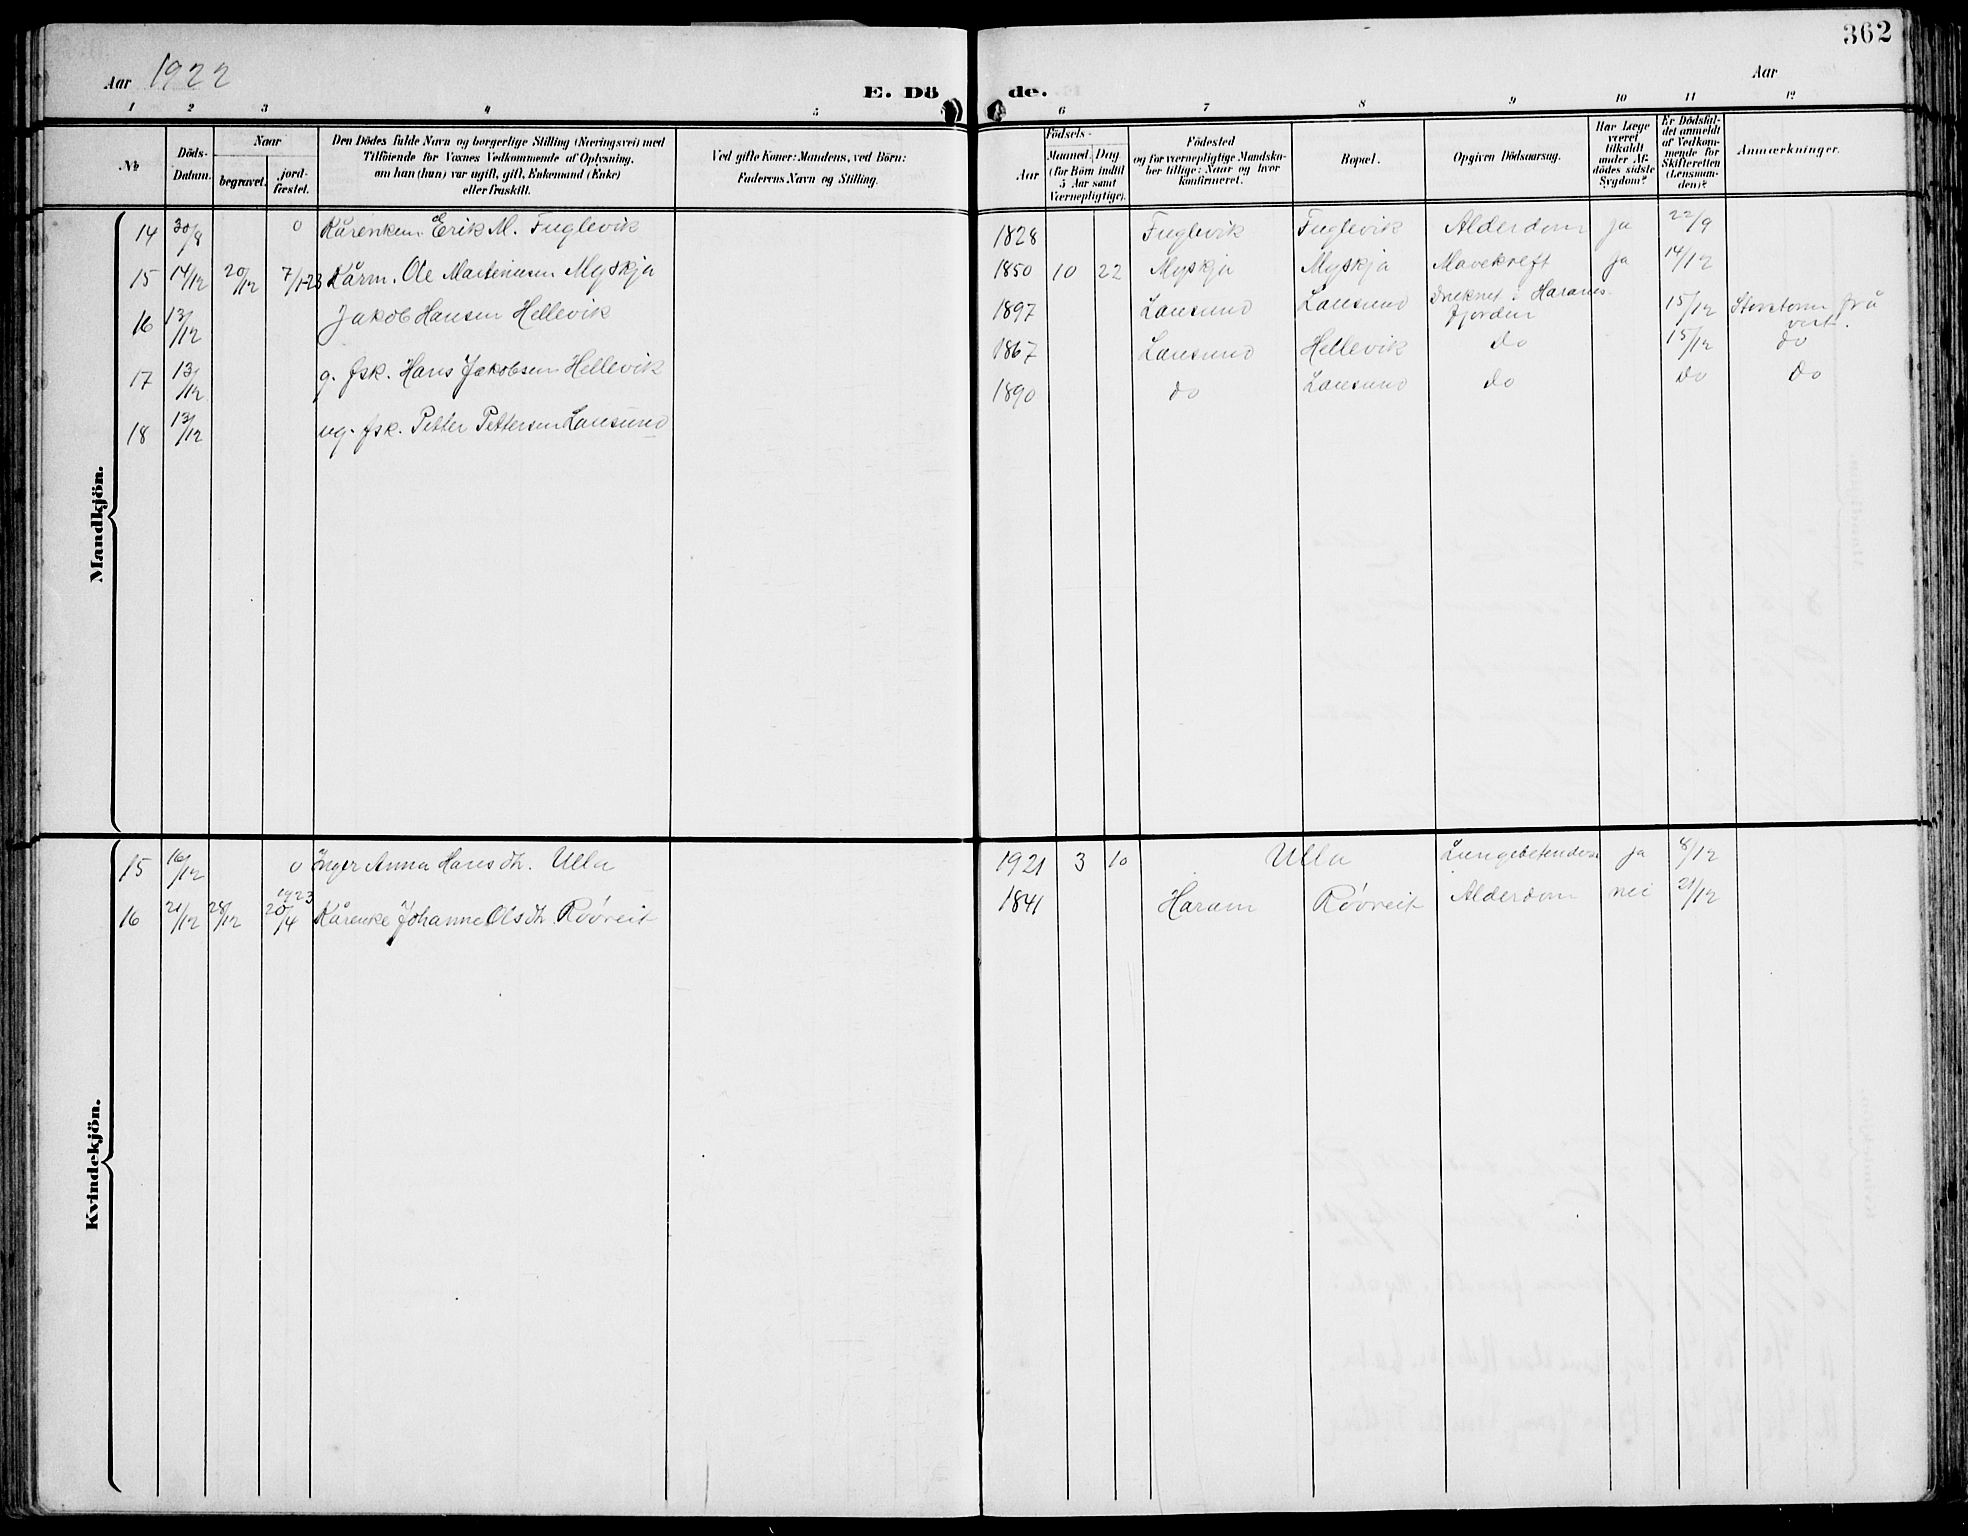 362
Aar 1922
E. Dö de.
Aar
1 2 3 4 5 6 7 8 9 10 11 12
№
Döds-Datum.
Naar
begravet.
jord-fæstet.
Den Dödes fulde Navn og borgerlige Stilling (Næringsvei) med
Tilföiende for Voxnes Vedkommende af Oplysning,
om han (hun) var ugift, gift, Enkemand (Enke)
eller fraskilt.
Ved gifte Koner: Mandens, ved Börn:
Faderens Navn og Stilling.
Födsels-
Aar
Maaned Dag
(for Börn indtil
5 Aar samt
Værnepligtige).
Födested
og for værnepligtige Mandska-
ber tillige: Naar og hvor
konfirmeret.
Bopæl.
Opgiven Dödsaarsag.
Har Læge
været
tilkaldt
under Af-
dödes sidste
Sygdom?
Er Dödsfal-
det anmeldt
af Vedkom-
mende for
Skifteretten
(Lensman-
den)?
Anmærkninger.
Mandkjön.
14 30/8 0 Kårenkem. Erik M. Fuglevik 1828 Fuglevik Fuglevik Alderdom ja 22/9
15 14/12 20/12 7/1-23 Kårm. Ole Martinusen Myskja 1850 10 22 Myskja Myskja Mavekreft ja 14/12
16 13/12 Jakob Hansen Hellevik 1897 Lausund Lausund Druknet i Harams-
fjorden 15/12 Storstorm frå
vest.
17 13/12 g. fsk. Hans Jakobsen Hellevik 1867 Lausund Hellevik do 15/12 do
18 13/12 ug. fsk. Petter Pettersen Lausund 1890 do Lausund do do do
Kvindekjön.
15 16/12 0 Inger Anna Hansdh. Ulla 1921 3 10 Ulla Lungebetendelse ja 8/12
1923
16 21/12 28/12 20/4 Kårenke Johanne Olsdh Röoveit 1841 Haram Röoveit Alderdom nei 21/12